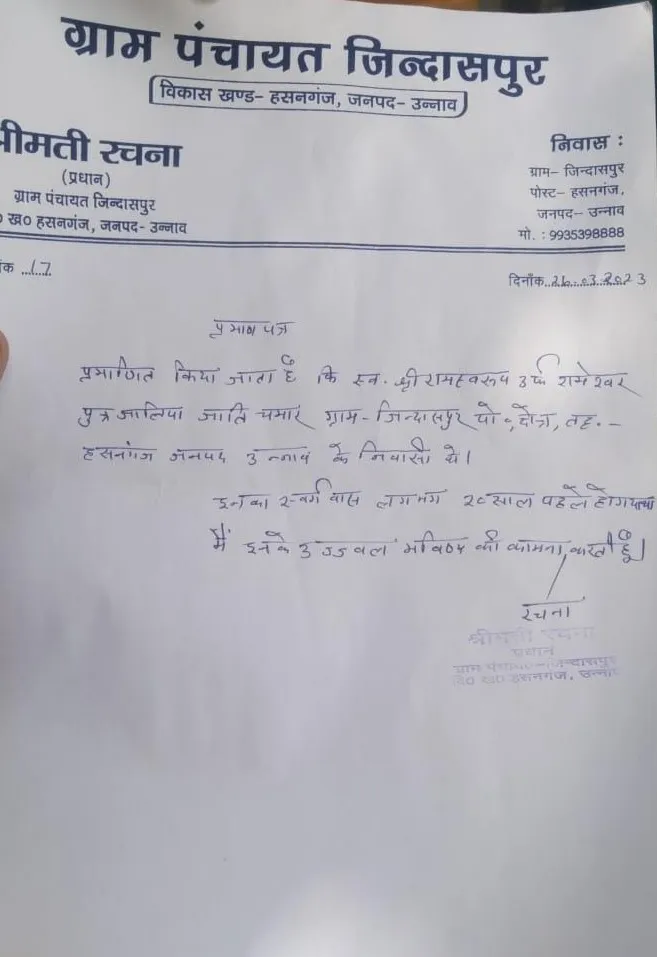 ग्राम पंचायत जिन्दासपुर
विकास खण्ड- हसनगंज, जनपद- उन्नाव
श्रीमती रचना
(प्रधान)
ग्राम पंचायत जिन्दासपुर
ख० हसनगंज, जनपद- उन्नाव
निवास :
ग्राम- जिन्दासपुर
पोस्ट- हसनगंज,
जनपद- उन्नाव
मो. : 9935398888
क ...17
दिनाँक..26.03.2023
प्रमाण पत्र
प्रमाणित किया जाता है कि स्व. श्री रामस्वरूप उर्फ रामेश्वर
पुत्र जालिया जाति चमार ग्राम-जिन्दासपुर पो०, तह. -
हसनगंज जनपद उन्नाव के निवासी थे।
इनका स्वर्गवास लगभग साल पहले हो गया था
मैं इनके उज्जवल भविष्य की कामना करती हूँ।
रचना
श्रीमती रचना
प्रधान
ग्राम पंचायत-जिन्दासपुर
वि० ख० हसनगंज, उन्नाव